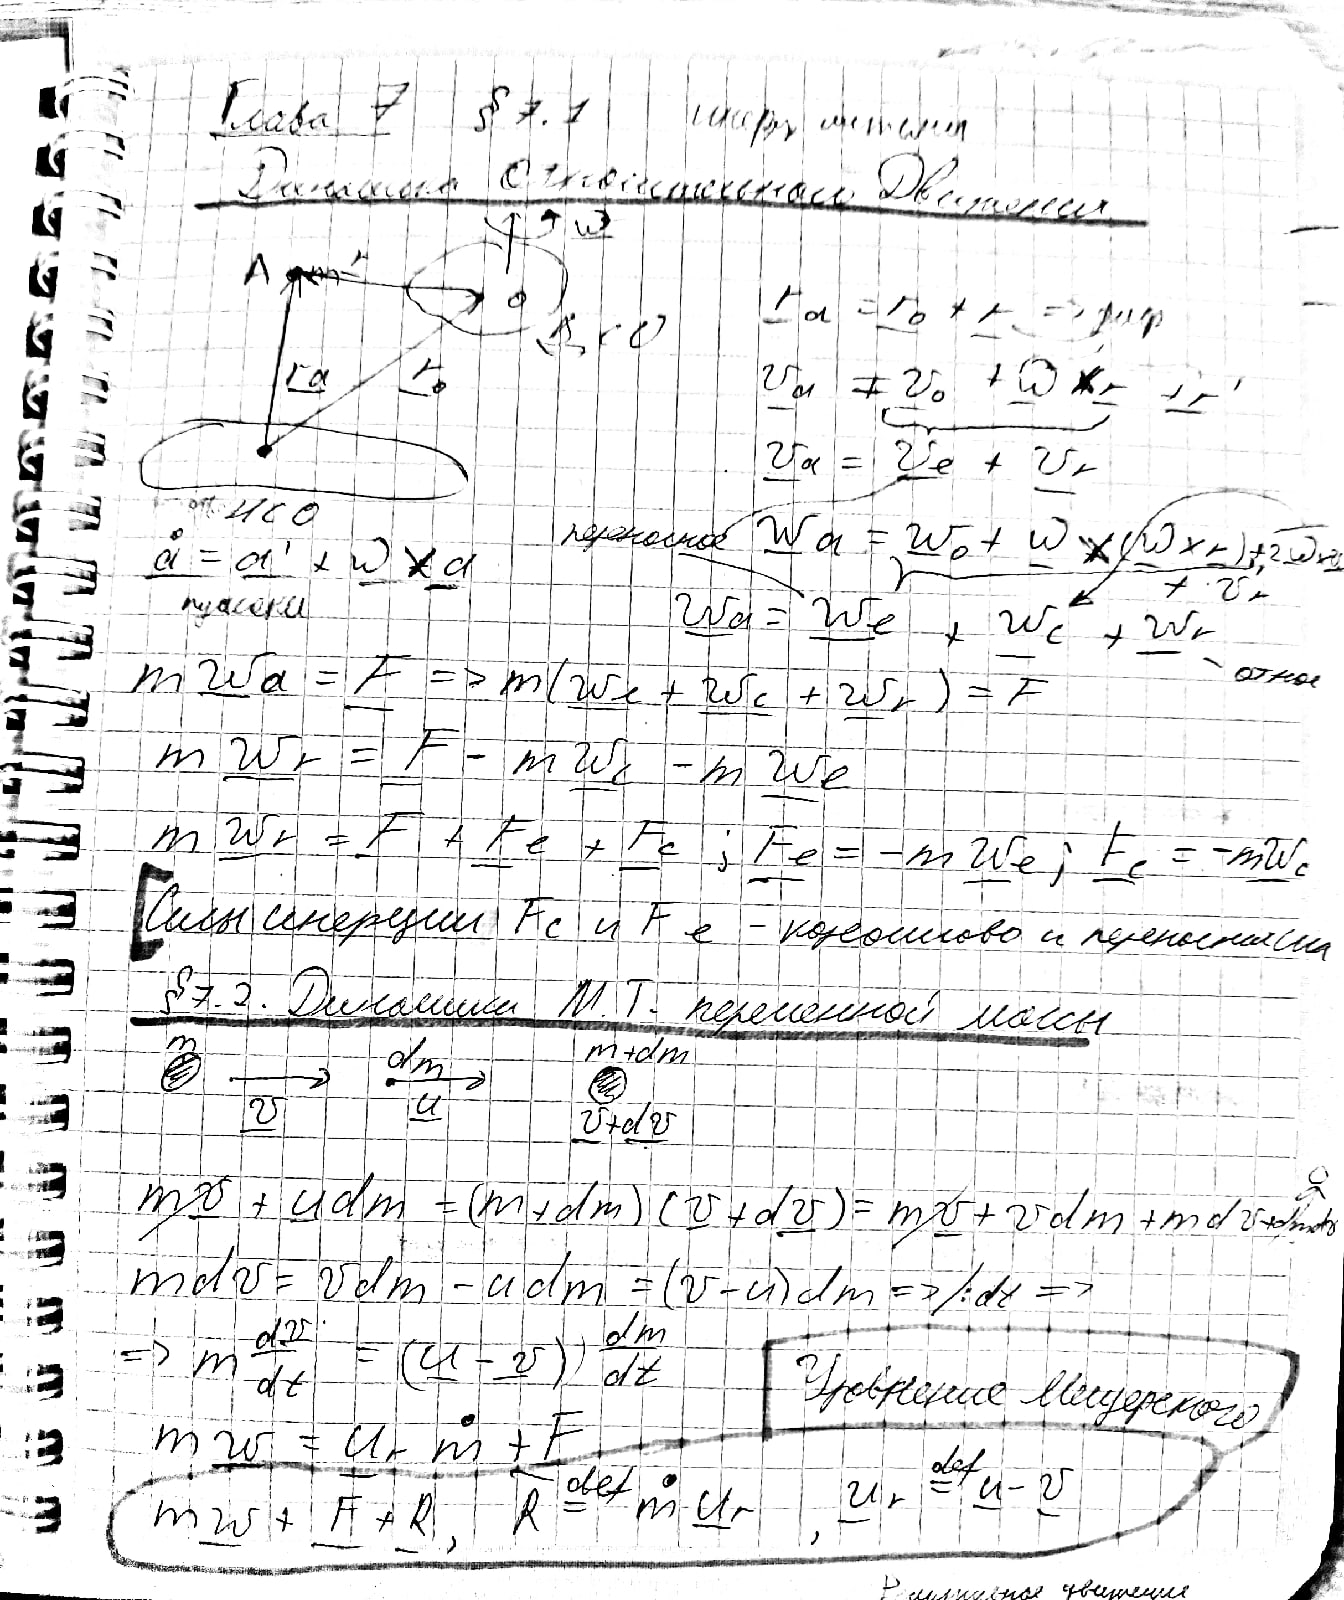 Глава 7 § 7.1
Динамика Относительного Движения
ω
A m r
О
r_a r_0
НСО
ИСО
r_a = r_0 + r =>
v_a = v_0 + ω × r + r'
v_a = v_e + v_r
å = a' + ω × a
переносное w_a = w_0 + ω × (ω × r) + 2ω×v_r
+ v'_r
w_a = w_e + w_c + w_r
относ
m w_a = F => m(w_e + w_c + w_r) = F
m w_r = F - m w_c - m w_e
m w_r = F + F_e + F_c ; F_e = -m w_e ; F_c = -m w_c
Силы инерции F_c и F_e - кориолисова и переносная
§ 7.2. Динамика М.Т. переменной массы
m dm m+dm
v u v+dv
0
mv + udm = (m+dm)(v+dv) = mv + vdm + mdv + dmdv
mdv = vdm - udm = (v-u)dm => /:dt =>
=> m dv/dt = (u - v) dm/dt
Уравнение Мещерского
m w = u_r ṁ + F
m w + F + R, R def= ṁ u_r , u_r def= u - v
движение